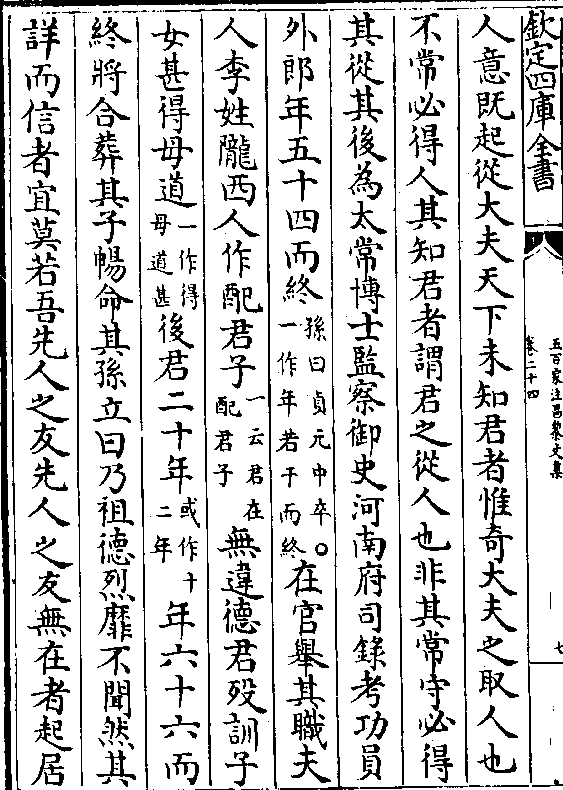 欽定四庫全書
五百家注昌黎文集
卷二十四
七
人意既起從大夫天下未知君者惟奇大夫之取人也
不常必得人其知君者謂君之從人也非其常守必得
其從其後為太常博士監察御史河南府司錄考功員
外郎年五十四而終孫曰貞元中卒一作年若干而終○在官舉其職夫
人李姓隴西人作配君子一云君在配君子無違德君歿訓子
女甚得母道一作得母道甚後君二十年或作十二年年六十六而
終將合葬其子暢命其孫立曰乃祖德烈靡不聞然其
詳而信者宜莫若吾先人之友先人之友無在者起居